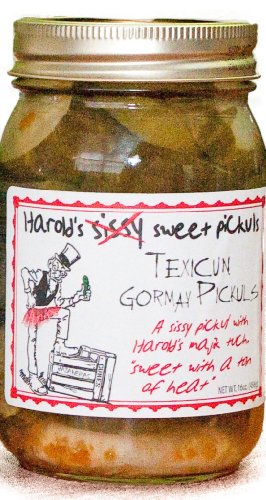 Harold's sissy sweet pickuls
TEXICUN
GORMAY PICKULS
A sissy pickul with
Harold's majik tuch,
"sweet with a ton
of heat"
NET WT. 16oz.